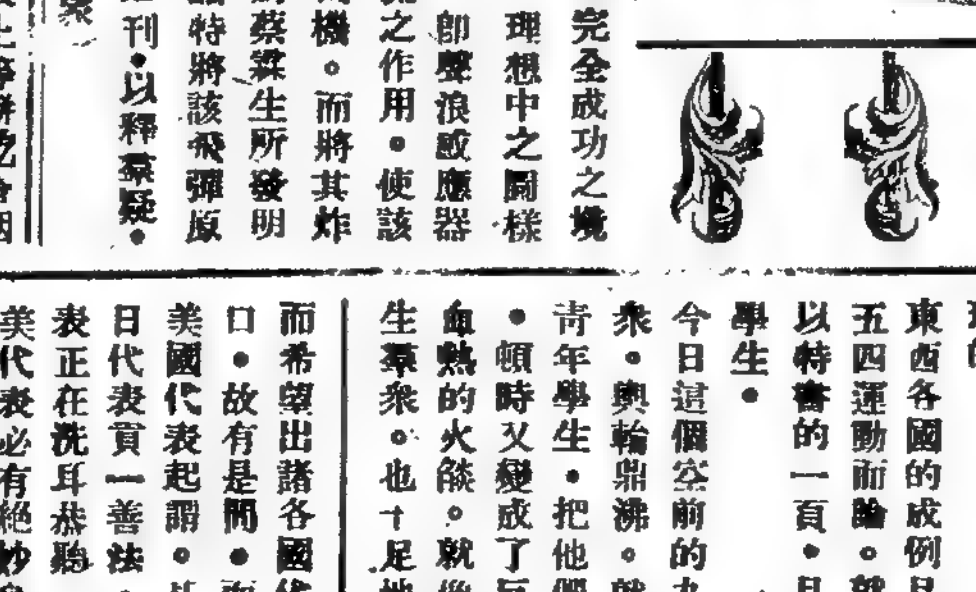 完全成功之境
理想中之圖樣
卽聲浪感應器
之作用。使該
機。而將其炸
蔡霖生所發明
特將該飛彈原
刊。以釋羣疑。
東西各國的成例
五四運動而論。就
以特書的一頁。
學生。
今日這個空前的九
衆。輿輪鼎沸。就
靑年學生。把他們
。頓時又變成了
血熱的火燄。就
生羣衆。也十足
而希望出諸各國代
口。故有是問。而
美國代表起謂。
日代表貢一善法
表正在洗耳恭聽
美代表必有絕妙